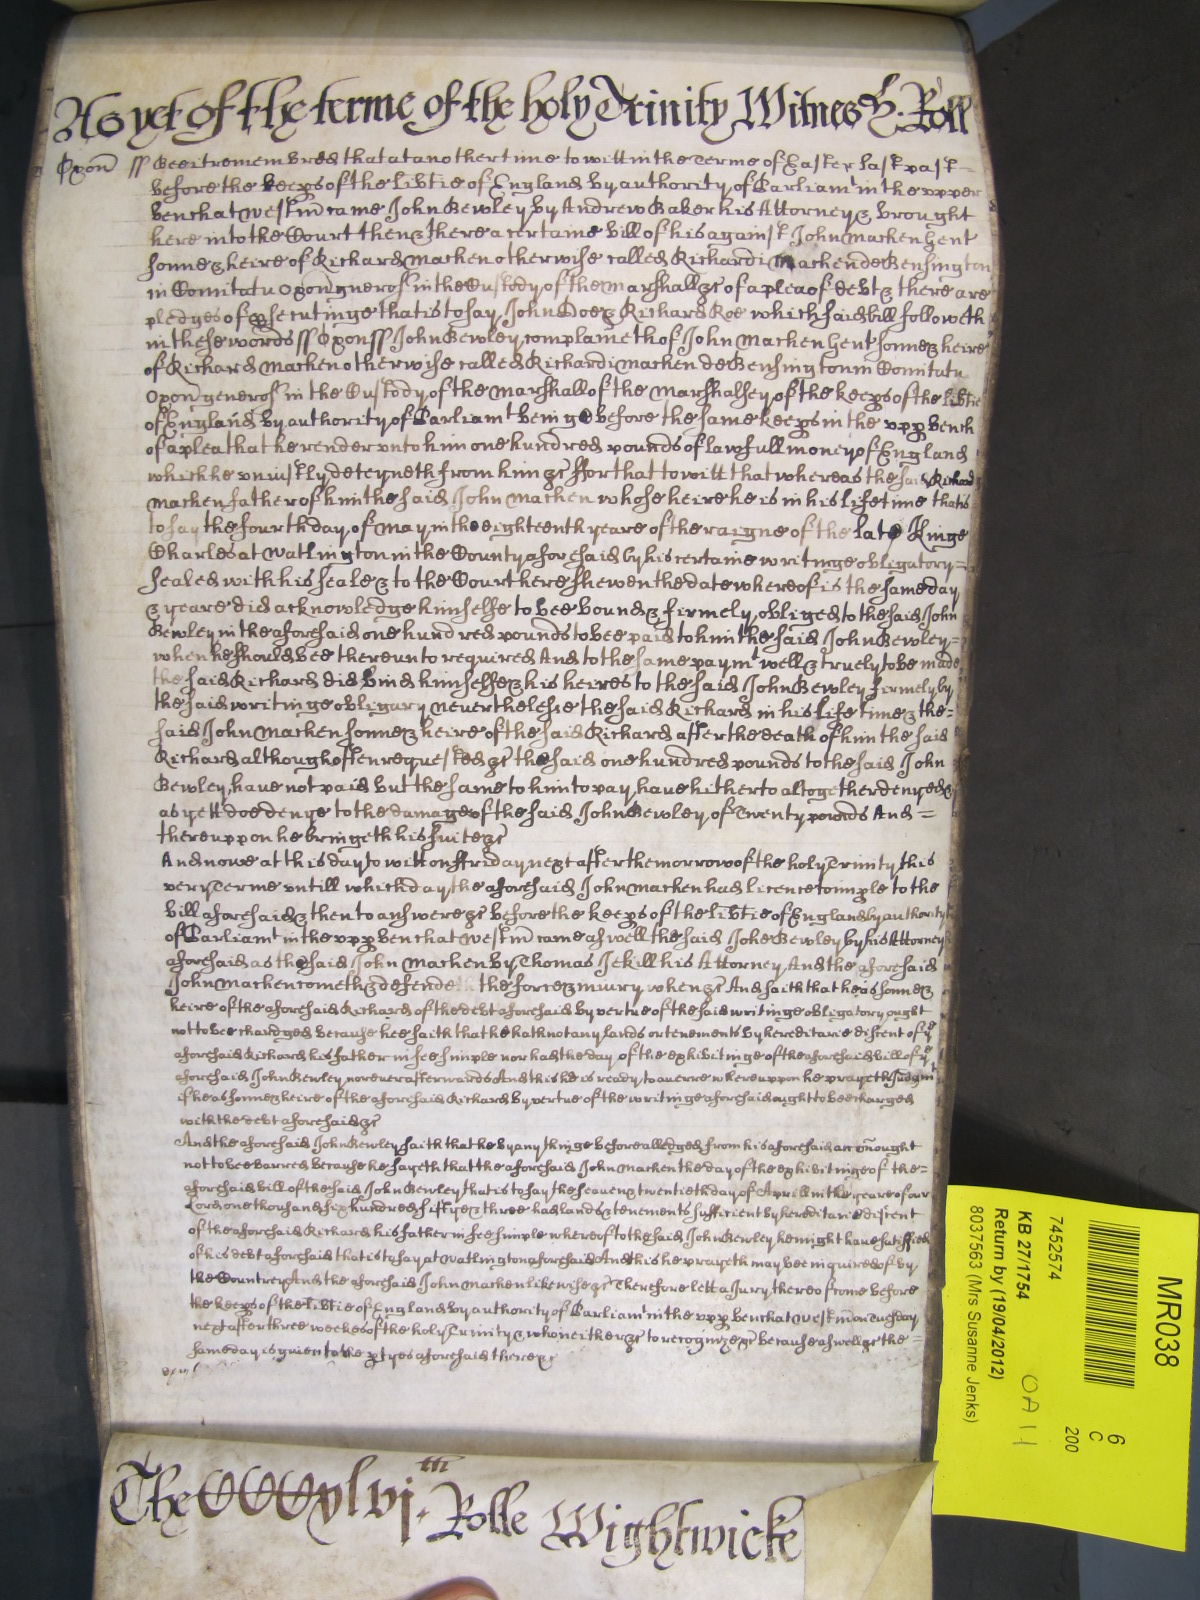 As yet of the terme of the holy Trinity Witnes H: Roll
Oxon ss Bee it remembred that at another time to witt in the Terme of Easter last past =
before the keeps of the libtie of England by authority of Parliamt in the upper
bench at Westm came John Bewley by Andrew Baker his Attorney & brought
here into the Court then & there a certaine bill of his against John Macken Gent
sonne & heire of Richard Macken otherwise called Richardi Macken de Bensington
in Comitatu Oxon generos in the Custody of the Marshall &c of a plea of debt & there are
pledges of psecutinge that is to say John Doe & Richard Roe which said bill followeth
in these words ss Oxon ss John Bewley complaineth of John Macken Gent sonne & heire
of Richard Macken otherwise called Richardi Macken de Bensington in Comitatu
Oxon generos in the Custody of the Marshall of the Marshalsey of the keeps of the libtie
of England by authority of Parliamt being before the same keeps in the upp bench
of a plea that he render unto him one hundred pounds of lawfull money of England
which he uniustly deteyneth from him &c ffor that to witt that whereas the said Richard
Macken father of him the said John Macken whose heire he is in his lifetime that is
to say the fourth day of May in the eighteenth yeare of the raigne of the late Kinge
Charles at Watlington in the County aforesaid by his certaine writinge obligatory =
sealed with his seale & to the Court here shewen the date whereof is the same day
& yeare did acknowledge himselfe to bee bound & firmely obliged to the said John
Bewley in the aforesaid one hundred pounds to bee paid to him the said John Bewley =
when he should bee thereunto required And to the same paymt well & truely to be made
the said Richard did bind himselfe & his heires to the said John Bewley firmely by
the said writinge obligary neverthelesse the said Richard in his life time & the =
said John Macken sonne & heire of the said Richard after the death of him the said
Richard although often requested &c the said one hundred pounds to the said John
Bewley have not paid but the same to him to pay have hitherto altogether denyed &
as yett doe denye to the damage of the said John Bewley of Twenty pounds And =
thereuppon he bringeth his suite &c
And nowe at this day to witt on ffriday next after the morrow of the holy Trinity this
very Terme untill which day the aforesaid John Macken had licence to imple to the
bill aforesaid & then to answere &c before the keeps of the libtie of England by authority
of Parliamt in the upp bench at Westm came aswell the said John Bewley by his Attorney
aforesaid as the said John Macken by Thomas Jekill his Attorney And the aforesaid
John Macken cometh & defendeth the force & iniury when &c And saith that he as sonne &
heire of the aforesaid Richard of the debt aforesaid by vertue of the said writinge obligatory ought
not to bee chardged because hee saith that he hath not any lands or tenements by hereditarie discent of ye
aforesaid Richard his father in fee simple nor had the day of the exhibitinge of the aforesaid bill of ye
aforesaid John Bewley nor ever afterwards And this he is ready to averre whereuppon he prayeth Judgmt
if he as sonne & heire of the aforesaid Richard by vertue of the writinge aforesaid ought to bee charged
with the debt aforesaid &c
And the aforesaid John Bewley saith that he by any thinge before alledged from his aforesaid accon ought
not to bee barred because he sayeth that the aforesaid John Macken the day of the exhibitinge of the =
aforesaid bill of the said John Bewley that is to say the seaven & twentieth day of Aprill in the yeare of our
Lord one thousand six hundred fifty & three had lands & tenements sufficient by hereditarie discent
of the aforesaid Richard his father in fee simple whereof to the said John Bewley he might have satisfied
of his debt aforesaid that is to say at Watlington aforesaid And this he prayeth may bee inquired of by
the Countrey And the aforesaid John Macken likewise &c Therefore lett a Jury thereof come before
the keeps of the libtie of England by authority of Parliamt in the upp bench at Westm on Tuesday
next after three weekes of the holy Trinity & who neither &c to recognize &c because aswell &c the =
same day is given to the ptyes aforesaid there &c
The CCCxlvj.th Rolle Wightwicke
MR038
6
C
200
7452574
KB 27/1754
OA 11
Return by (19/04/2012)
8037563 (Mrs Susanne Jenks)